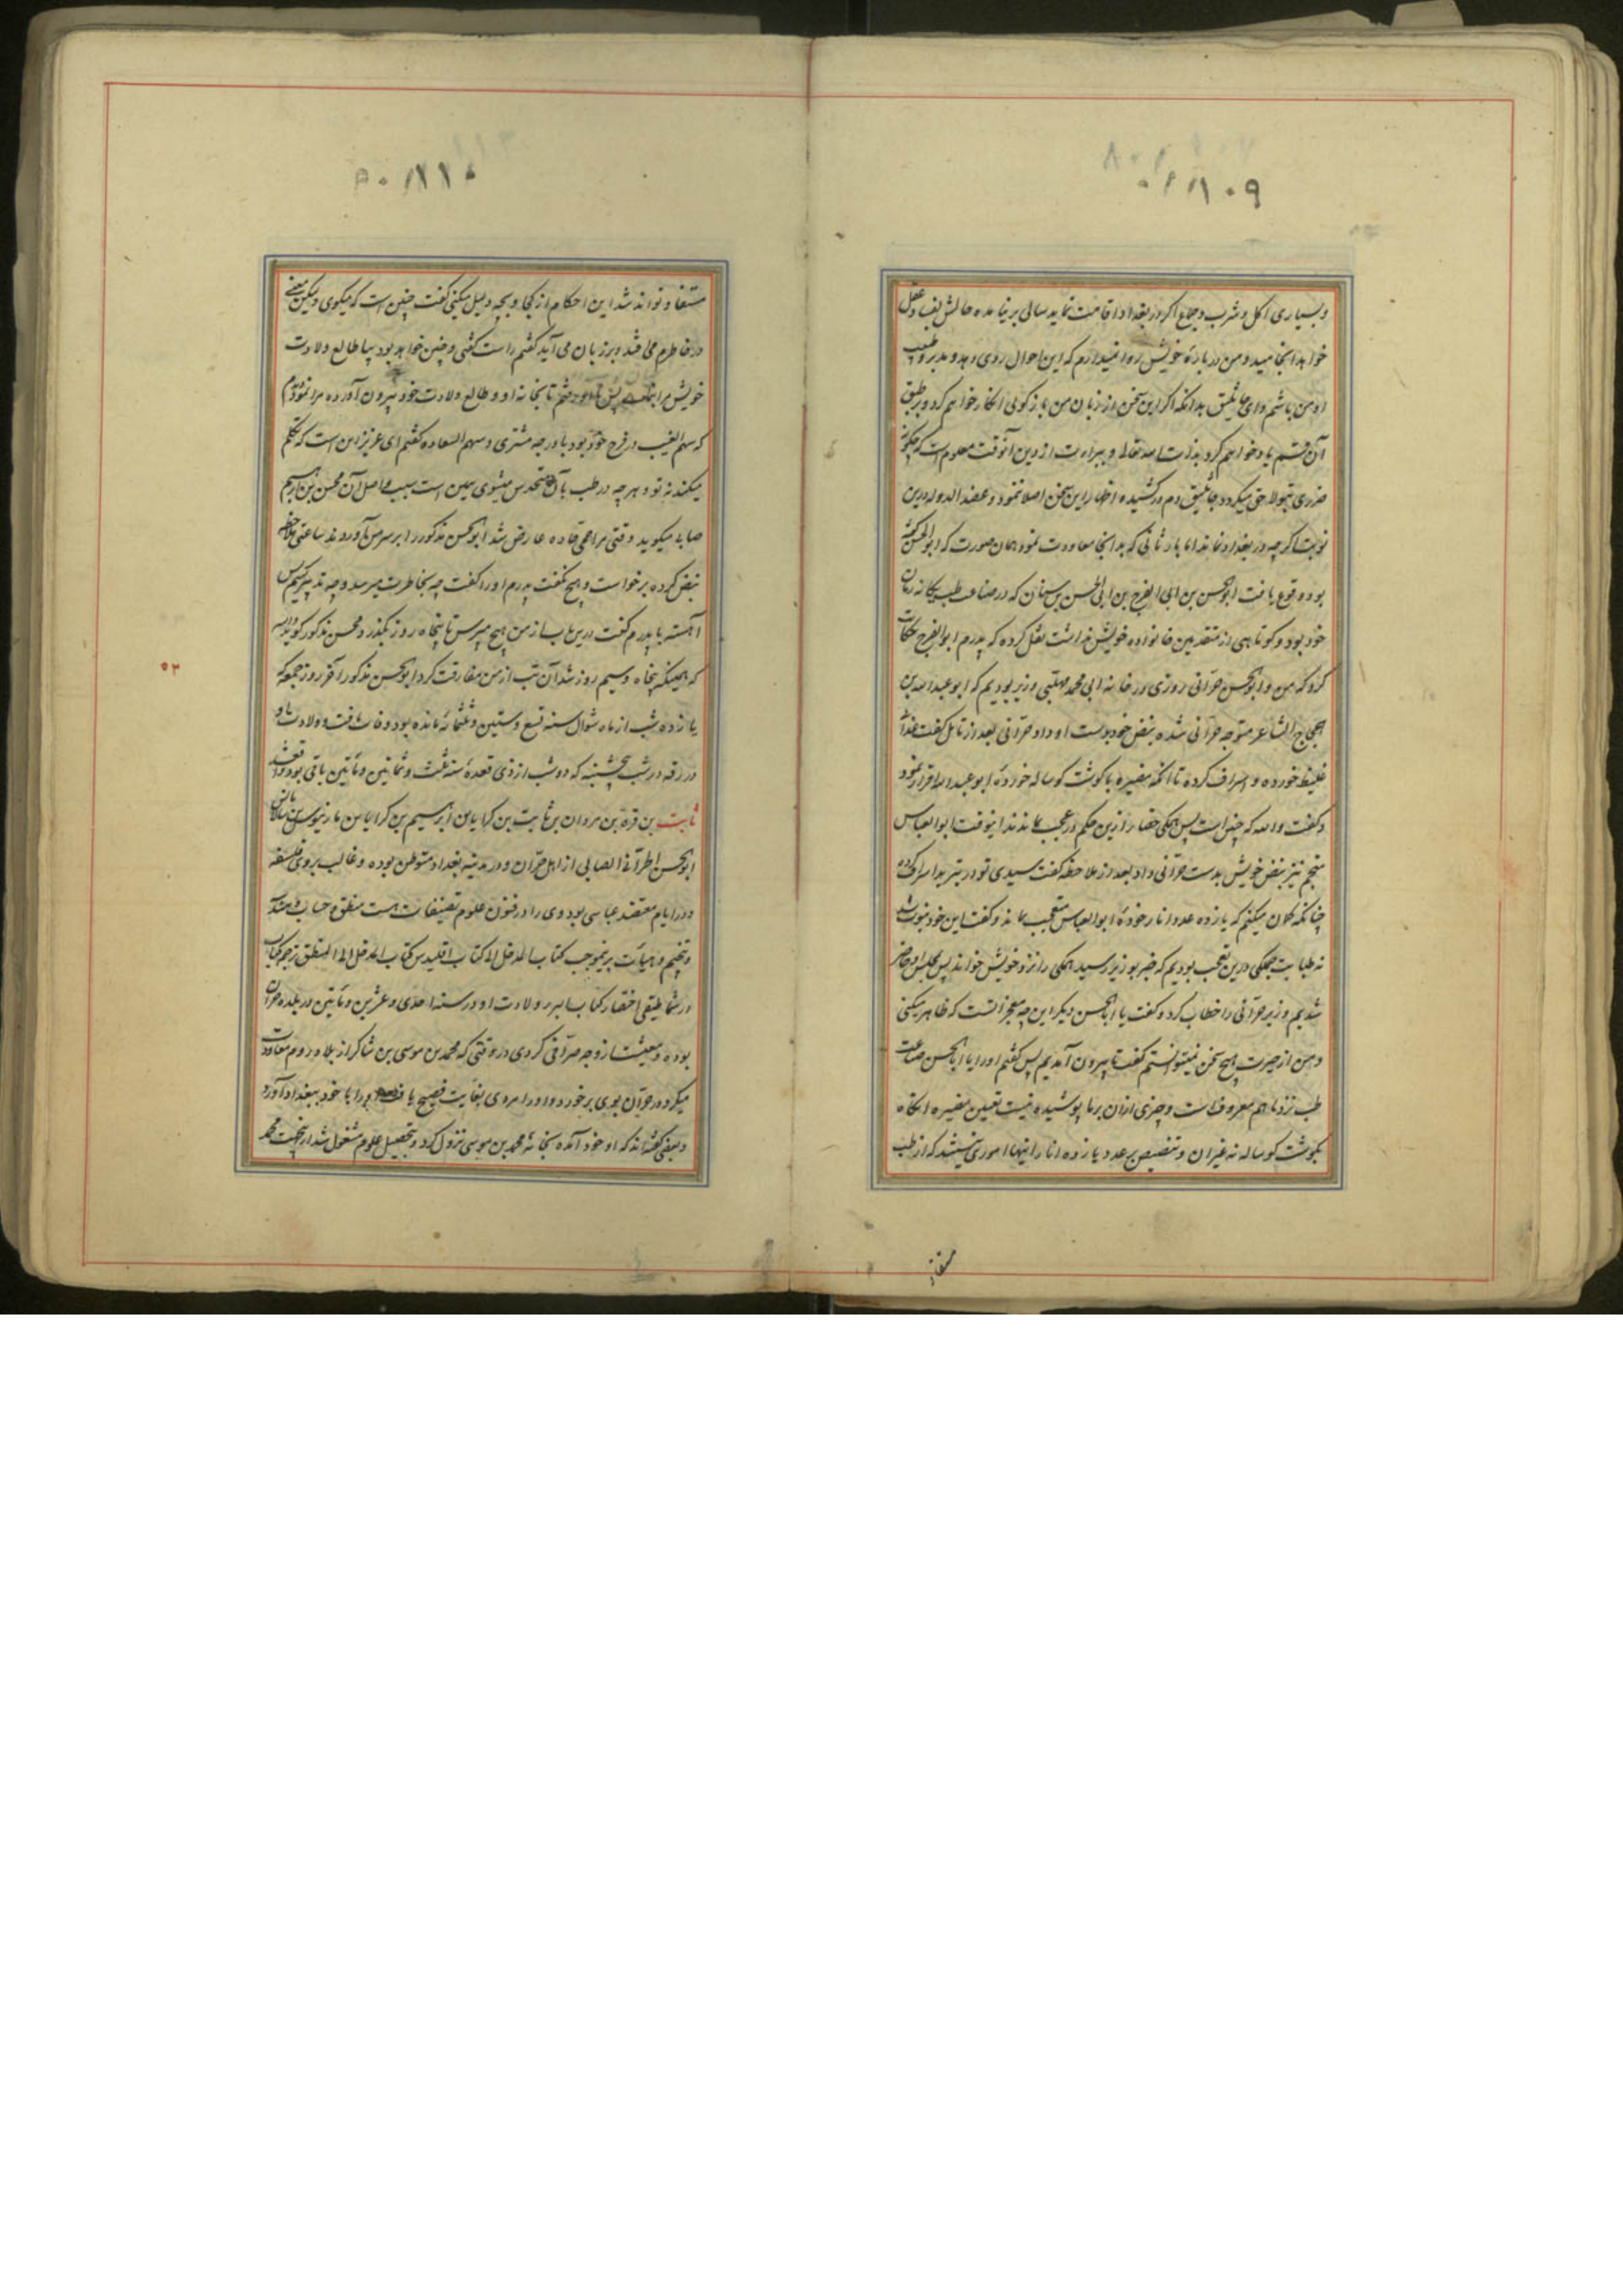 ۱۰۹
و بسیاری اکل و شرب و جماع اگر در بغداد اقامت نماید سالی بر نیامده حالش بفساد عقل
خواهد انجامید و من درباره خویش روا نمیدارم که این احوال روی دهد و مدبر و طبیب
او من باشم و ای جاثلیق بدانکه اگر این سخن از زبان من بازگوئی انکار خواهم کرد و بر طبق
آن قسم یاد خواهم کرد بذات الله تعالی و ببراءت از دین آنوقت معلوم است که چگونه
ضرری بتو لاحق میگردد جاثلیق دم در کشیده اظهار این سخن اصلا ننمود و عضد الدوله درین
نوبت اگر چه در بغداد نماند اما بار ثانی که بدانجا معاودت نمود همان صورت که ابو الحسن گفته
بود وقوع یافت ابو الحسن بن ابی الفرج بن ابی الحسن بن سنان که در صناعت طب یگانه زمان
خود بود و کوتاهی از متقدمین خانواده خویش نداشت نقل کرده که پدرم ابو الفرج حکایت
کرد که من و ابو الحسن حرانی روزی در خانه ابی محمد مهلبی وزیر بودیم که ابو عبد الله بن
الحجاج الشاعر متوجه حرانی شده نبض خود بدست او داد حرانی بعد از تامل گفت غذاء
غلیظ خورده و اسراف کرده تا آنکه مضیره با گوشت گوساله خورده ابو عبد الله اقرار نمود
و گفت والله که چنین است پس همگی حضار ازین حکم در عجب بماندند اینوقت ابو العباس
منجم نیز نبض خویش بدست حرانی داد بعد از ملاحظه گفت سیدی تو در تبرید اسراف کرده
چنانکه گمان میکنم که یازده عدد انار خورده ابو العباس متعجب بماند و گفت این خود نبوت باشد
نه طبابت جملگی درین تعجب بودیم که خبر بوزیر رسید همگی را نزد خویش خواند پس بمجلس او حاضر
شدیم وزیر حرانی را خطاب کرد و گفت یا ابا الحسن دیگر این چه معجزاتست که ظاهر میکنی
و من از حیرت هیچ سخن نمیتوانستم گفت تا بیرون آمدیم پس گفتم او را یا ابا الحسن صناعت
طب نزد ما هم معروفست و چیزی از آن بر ما پوشیده نیست تعیین مضیره انگاه
بگوشت گوساله نه غیر آن و تنصیص بر عدد یازده انار اینها اموری نیستند که از طب
مستفاد
۱۱۰
مستفاد تواند شد این احکام از کجا و بچه دلیل میکنی گفت چنین است که میگوی و لیکن معنی
در خاطرم می افتد و بر زبان می آید گفتم راست گفتی و چنین خواهد بود بیا طالع ولادت
خویش مرا بنمای پس رفتم تا بخانه او و طالع ولادت خود بیرون آورده مرا نمود دیدم
که سهم الغیب در فرح خود بود با درجه مشتری و سهم السعاده گفتم ای عزیز این است که تکلم
میکند نه تو و هر چه در طب بآن تحدس مینموی همین است سبب و اصل آن محسن بن ابراهیم
صابی میگوید وقتی مرا حمی حاده عارض شد ابو الحسن مذکور را بر سر من آوردند ساعتی ملاحظه
نبض کرده برخواست و هیچ نگفت پدرم او را گفت چه بخاطرت میرسد و چه تدبیر کنیم پس
آهسته با پدرم گفت درین باب از من هیچ مپرس تا پنجاه روز بگذرد محسن مذکور گوید والله
که همینکه پنجاه و سیم روز شد آن تب از من مفارقت کرد ابو الحسن مذکور آخر روز جمعه که
یازده شب از ماه شوال سنه تسع و ستین و ثلثمائه مانده بود وفات یافت و ولادت او
در رقه در شب پنجشنبه که دو شب از ذی قعده سنه ثلث و ثمانین و مأتین باقی بود واقع شد
ثابت بن قره بن مروان بن ثابت بن کرایا بن ابرهیم بن کرایا بن مارینوس بن مالاغریوس
ابو الحسن الحرانی الصابی از اهل حران و در مدینه بغداد متوطن بوده و غالب بر وی فلسفه
در ایام معتضد عباسی بود وی را در فنون علوم تصنیفات هست منطق و حساب و هندسه
و تنجیم و هیات برینموجب کتاب المدخل الی کتاب اقلیدس کتاب المدخل الی المنطق ترجمه کتاب
ارثماطیقی اختصار کتاب ولادت او در سنه احدی و عشرین و مأتین در بلده حران
بوده و معیشت از وجه صرافی کردی در وقتی که محمد بن موسی بن شاکر از بلاد روم معاودت
میکرد در حران بوی برخورد و او را مردی بغایت فصیح یافت او را با خود ببغداد آورد
و بعضی گفته اند که او خود آمده بخانه محمد بن موسی نزول کرد و بتحصیل علوم مشغول شد ازین جهت محمد
۵۳